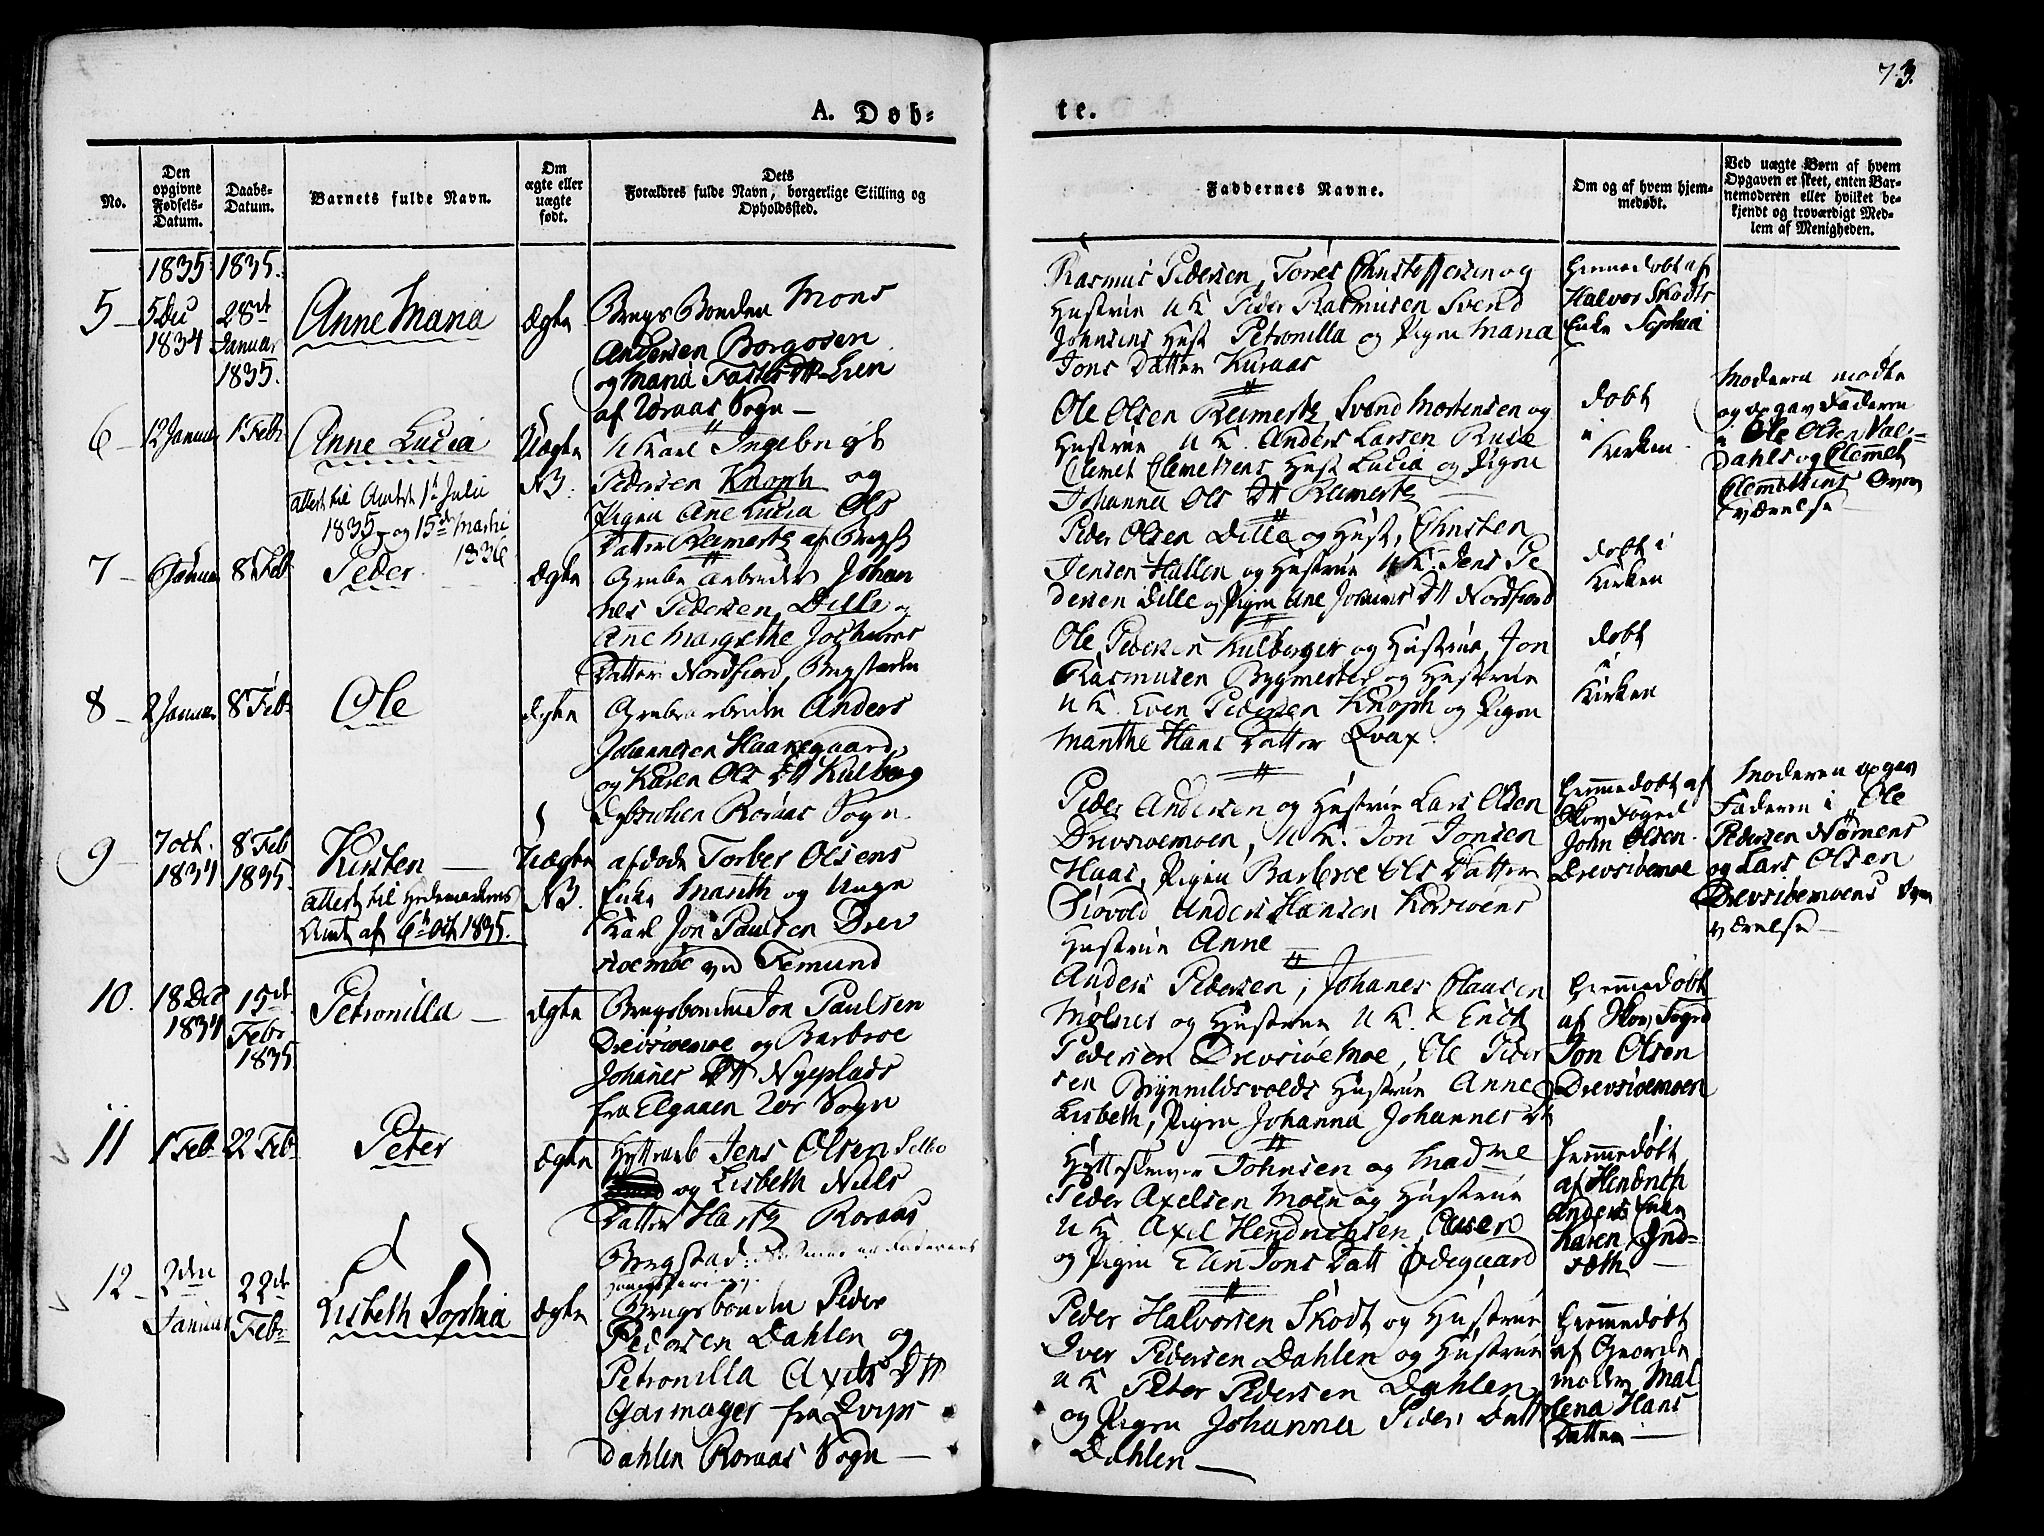 73.
A. Døb-
te.
No.
Den
opgivne
Fødsels-
Datum.
Daabs-
Datum.
Barnets fulde Navn.
Om
ægte eller
uægte
født.
Dets
Forældres fulde Navn, borgerlige Stilling og
Opholdssted.
Faddernes Navne.
Om og af hvem hjem-
medøbt.
Ved uægte Børn af hvem
Opgaven er skeet, enten Bar-
nemoderen eller hvilket be-
kjendt og troværdigt Med-
lem af Menigheden.
1835 1835.
5 -
5 Dec
1834
28de
Januar
1835.
Anne Maria
Ægte
Brugs Bonden Mons
Andersen Borgosen
og Maria
af Røraas Sogn -
Rasmus Pedersen, Tønes Christoffersen og
Hustrue U K Peder Rasmusen Svend
Johnsens Hust Petronilla og Pigen Maria
Jons Datter Kuraas
Hiemmedøbt af
Halvor Skodts
Enke Sophia
6 -
12 Januar
1 Febr
Anne Lucia
attest til Amtet 1 Julii
1835 og 15de Martii
1836
Uægte
NB.
U Karl Ingebrigt
Pedersen Knoph og
Pigen Ane Lucia Ols
Datter Reimertz af Bergst
Ole Olsen Reimertz Svend Mortensen og
Hustrue U K. Anders Larsen Ruse
Clemet Clemetsens Hust Lucia og Pigen
Johanna Ols Dtt Reimertz
døbt
i
Kirken
Moderen mødte
og opgav Faderen
i Ole Olsen Val-
Dahls og Clemet
Clemetsens Over
værelse
7 -
6 Januar
8 Feb
Peder
Ægte
Grube arbeider Johan
nes Pedersen Dille og
Ane Margrethe Jochums
Datter Nordfiord, Bergstaden
Peder Olsen Dille og Hust, Christen
Jensen Hallen og Hustrue U K. Jens Pe
dersen Dille og Pigen Ane Jochums Dtt Nordfiord
døbt i
Kirken
8 -
2 Januar
8 Feb
Ole
ægte
Grubearbeider Anders
Johannesen Haaregaard
og Karen Ols Dtt Kulberg
Røraas Sogn
Ole Pedersen Kulberget og Hustrue, Jon
Rasmusen Bygmester og Hustrue
U K. Even Pedersen Knoph og Pigen
Marithe Hans Datter Qvax.
døbt
i
Kirken
9 -
7 oct.
1834
8 Feb
1835.
Kirsten
attest til Hedemarkens
Amt af 6 Oct 1835.
Uægte
NB.
afdøde Torber Olsens
Enke Marith og Unge
Karl Jon Paulsen Drev
sioemoe ved Femund
Peder Andersen og Hustrue Lars Olsen
Drevsioemoen, U K. Jon Jonsen
Haas, Pigen Barbroe Ols Datter
Siøvold Anders Hansen Korsvens
Hustrue Anne
Hiemmedøbt af
Skov Foged
John Olsen
Drevsioemoe
Moderen opgav
Faderen i Ole
Pedersen Nørnens
og Lars Olsen
Drevsiøemoens Over
værelse -
10.
18 Dec
1834
15de
Febr
1835
Petronilla
ægte
Brugsbonden Jon Paulsen
Drevsioemoe og Barbroe
Johanes Dtt Nyeplads
fra Elgaaen Rør Sogn
Anders Pedersen, Johanes Claasen
Molnes og Hustrue U K. Erich
Pedersen Drevsiøe Moe, Ole Peder
sen Brynnildsvolds Hustrue Anne
Lisbeth, Pigen Johanna Johannes Dt
Hiemmedøbt
af Skov Foged
Jon Olsen
Drevsioemoen
11
1 Feb
22 Feb
Peter
Ægte
Hyttearb Jens Olsen Selbo
og Lisbeth Nils
Datter Hartz Røraas
Bergstad.
Hytteskriver Johnsen og Madme
Peder Axelsen Moen og Hustrue
U K. Axel Hendrichsen
og Pigen Elen Jons Datt Ødegaard
Hiemmedøbt
af Hendrich
Anders Enke
Karen Ind-
sæth
12 -
2den
Januar
22de
Feb
Lisbeth Sophia
Ægte
Brugsbonden Peder
Pedersen Dahlen og
Petronilla Axels Dtt
Garmager fra
dahlen Røraas Sogn -
Peder Halvorsen Skodt og Hustrue
Iver Pedersen Dahlen og Hustrue
U K Peter Pedersen Dahlen
og Pigen Johanna Peders Datt
Dahlen -
Hiemmedøbt
af Giorde
moder Mal
lena Hans
Datter -